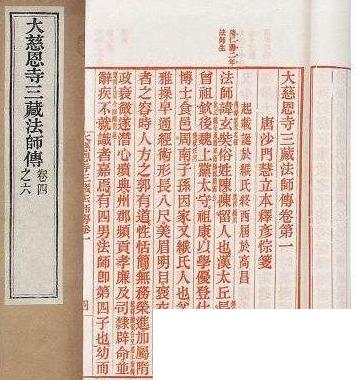 大慈恩寺三藏法師傳
卷四之六
隋仁壽二年
法師生
大慈恩寺三藏法師傳卷第一
唐沙門慧立本釋彥悰箋
起載誕於緱氏終西屆於高昌
法師諱玄奘俗姓陳陳留人也漢太丘長
曾祖欽後魏上黨太守祖康以學優登仕
博士食邑周南子孫因家又緱氏人也
雅操早通經術形長八尺美眉明目褒衣
者之容時人方之郭有道性恬簡無務榮進加屬隋
政衰微遂潛心墳典州郡頻貢孝廉及司隸辟命並
辭疾不就識者嘉焉有四男法師即第四子也幼而